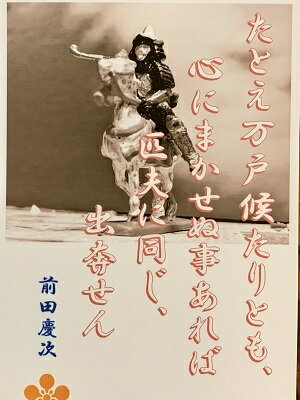 たとえ万戸候たりとも、
心にまかせぬ事あれば
匹夫に同じ、
出奔せん
前田慶次